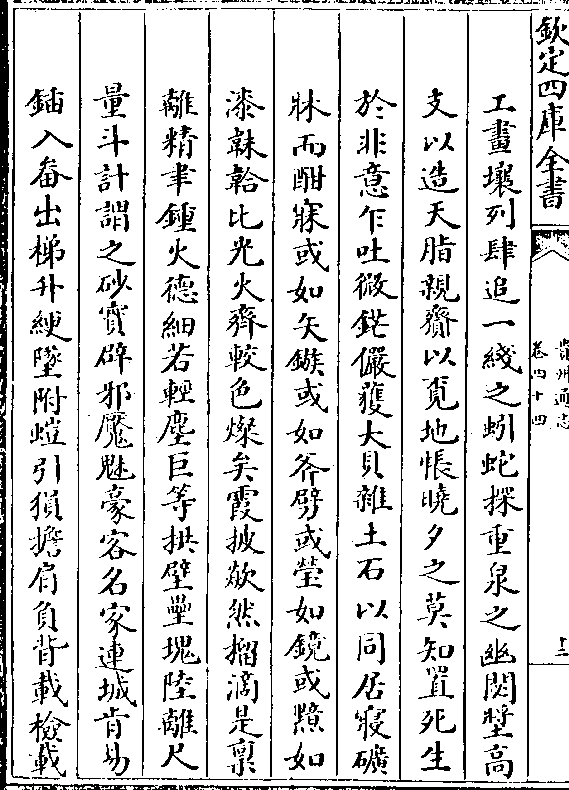 欽定四庫全書
貴州通志
卷四十四
十三
工畫壤列肆追一綫之蚓蛇探重泉之幽閟壍高
支以造天脂親齎以覓地悵曉夕之莫知置死生
於非意乍吐微鋩儼獲大貝雜土石以同居寢礦
牀而酣寐或如矢鏃或如斧劈或瑩如鏡或黯如
漆韎韐比光火齊較色燦矣霞披歘然榴滴是稟
離精聿鍾火德細若輕塵巨等拱璧壘塊陸離尺
量斗計謂之砂寳辟邪魘魅豪客名家連城肯易
鍤入畚出梯升綆墜附螘引猿擔肩負背載檢載